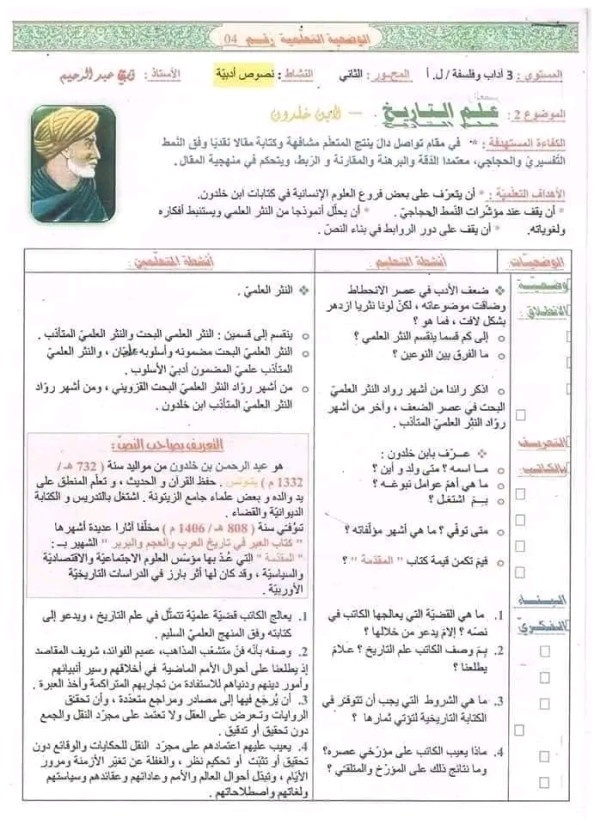 الوضعية التعلمية رقم 04
المستوى : 3 آداب وفلسفة / ل. أ المحور : الثاني النشاط : نصوص أدبيّة الأستاذ : عبد الرحيم
الموضوع 2 : علم التاريخ – لابن خلدون
الكفاءة المستهدفة : * في مقام تواصل دالّ ينتج المتعلّم مشافهة وكتابة مقالا نقديّا وفق النّمط
التّفسيريّ والحجاجي، معتمدا الدّقة والبرهنة والمقارنة و الرّبط، ويتحكم في منهجية المقال .
الأهداف التعلميّة : * أن يتعرّف على بعض فروع العلوم الإنسانية في كتابات ابن خلدون.
* أن يقف عند مؤشّرات النّمط الحجاجيّ . * أن يحلّل أنموذجا من النثر العلمي ويستنبط أفكاره
ولغوياته. * أن يقف على دور الروابط في بناء النصّ .
الوضعيات : أنشطة التعليم : أنشطة المتعلّمين :
وضعية
الانطلاق:
ضعف الأدب في عصر الانحطاط
وضاقت موضوعاته ، لكنّ لونا نثريا ازدهر
بشكل لافت ، فما هو ؟
إلى كم قسما ينقسم النثر العلمي ؟
ما الفرق بين النوعين ؟
اذكر رائدا من أشهر رواد النثر العلميّ
البحت في عصر الضعف ، وآخر من أشهر
روّاد النثر العلميّ المتأدّب .
النثر العلميّ .
ينقسم إلى قسمين : النثر العلمي البحت والنثر العلميّ المتأدّب .
النثر العلميّ البحت مضمونه وأسلوبه علميّان ، والنثر العلميّ
المتأدّب علميّ المضمون أدبيّ الأسلوب .
من أشهر روّاد النثر العلميّ البحت القزويني ، ومن أشهر روّاد
النثر العلميّ المتأدّب ابن خلدون .
التعريف
بالكاتب
عـرّف بابن خلدون :
ما اسمه ؟ متى ولد و أين ؟
ما هي أهمّ عوامل نبوغـه ؟
بـمَ اشتغل ؟
متى توفّي ؟ ما هي أشهر مؤلّفاته ؟
فيمَ تكمن قيمة كتاب " المقدّمة " ؟
التعريف بصاحب النصّ :
هو عبد الرحمن بن خلدون من مواليد سنة ( 732 هـ /
1332 م ) بتونس . حفظ القرآن و الحديث ، و تعلّم المنطق على
يد والده و بعض علماء جامع الزيتونة . اشتغل بالتدريس و الكتابة
الديوانيّة والقضاء .
توفّي سنة ( 808 هـ / 1406 م ) مخلّفا آثارا عديدة أشهرها
" كتاب العبر في تاريخ العرب والعجم والبربر " الشهير بـ :
" المقدّمة " التي عُدّ بها مؤسّس العلوم الاجتماعيّة والاقتصاديّة
والسياسيّة ، وقد كان لها أثر بارز في الدراسات التاريخيّة
الأوربيّة .
البنـاء
الفكري
1. ما هي القضيّة التي يعالجها الكاتب في
نصّه ؟ إلامَ يدعو من خلالها ؟
2. بـمَ وصف الكاتب علم التاريخ ؟ علامَ
يطلعنا ؟
3. ما هي الشروط التي يجب أن تتوفّر في
الكتابة التاريخية لتؤتي ثمارها ؟
4. ماذا يعيب الكاتب على مؤرّخي عصره؟
وما نتائج ذلك على المؤرّخ والمتلقي ؟
1. يعالج الكاتب قضيّة علميّة تتمثّل في علم التاريخ ، ويدعو إلى
كتابته وفق المنهج العلميّ السليم .
2. وصفه بأنّه فنّ متشعّب المذاهب، عميم الفوائد، شريف المقاصد
إذ يطلعنا على أحوال الأمم الماضية في أخلاقهم وسير أنبيائهم
وأمور دينهم ودنياهم للاستفادة من تجاربهم المتراكمة وأخذ العبرة .
3. أن يُرجَع فيها إلى مصادر ومراجع متعدّدة ، وأن تحقّق
الروايات وتُـعرض على العقل ولا تعتمد على مجرّد النقل والجمع
دون تحقيق أو تدقيق .
4. يعيب عليهم اعتمادهم على مجرّد النقل للحكايات والوقائع دون
تحقيق أو تثبّت أو تحكيم نظر ، والغفلة عن تغيّر الأزمنة ومرور
الأيّام ، وتبدّل أحوال العالم والأمم وعاداتهم وعقائدهم وسياستهم
ولغاتهم واصطلاحاتهم .